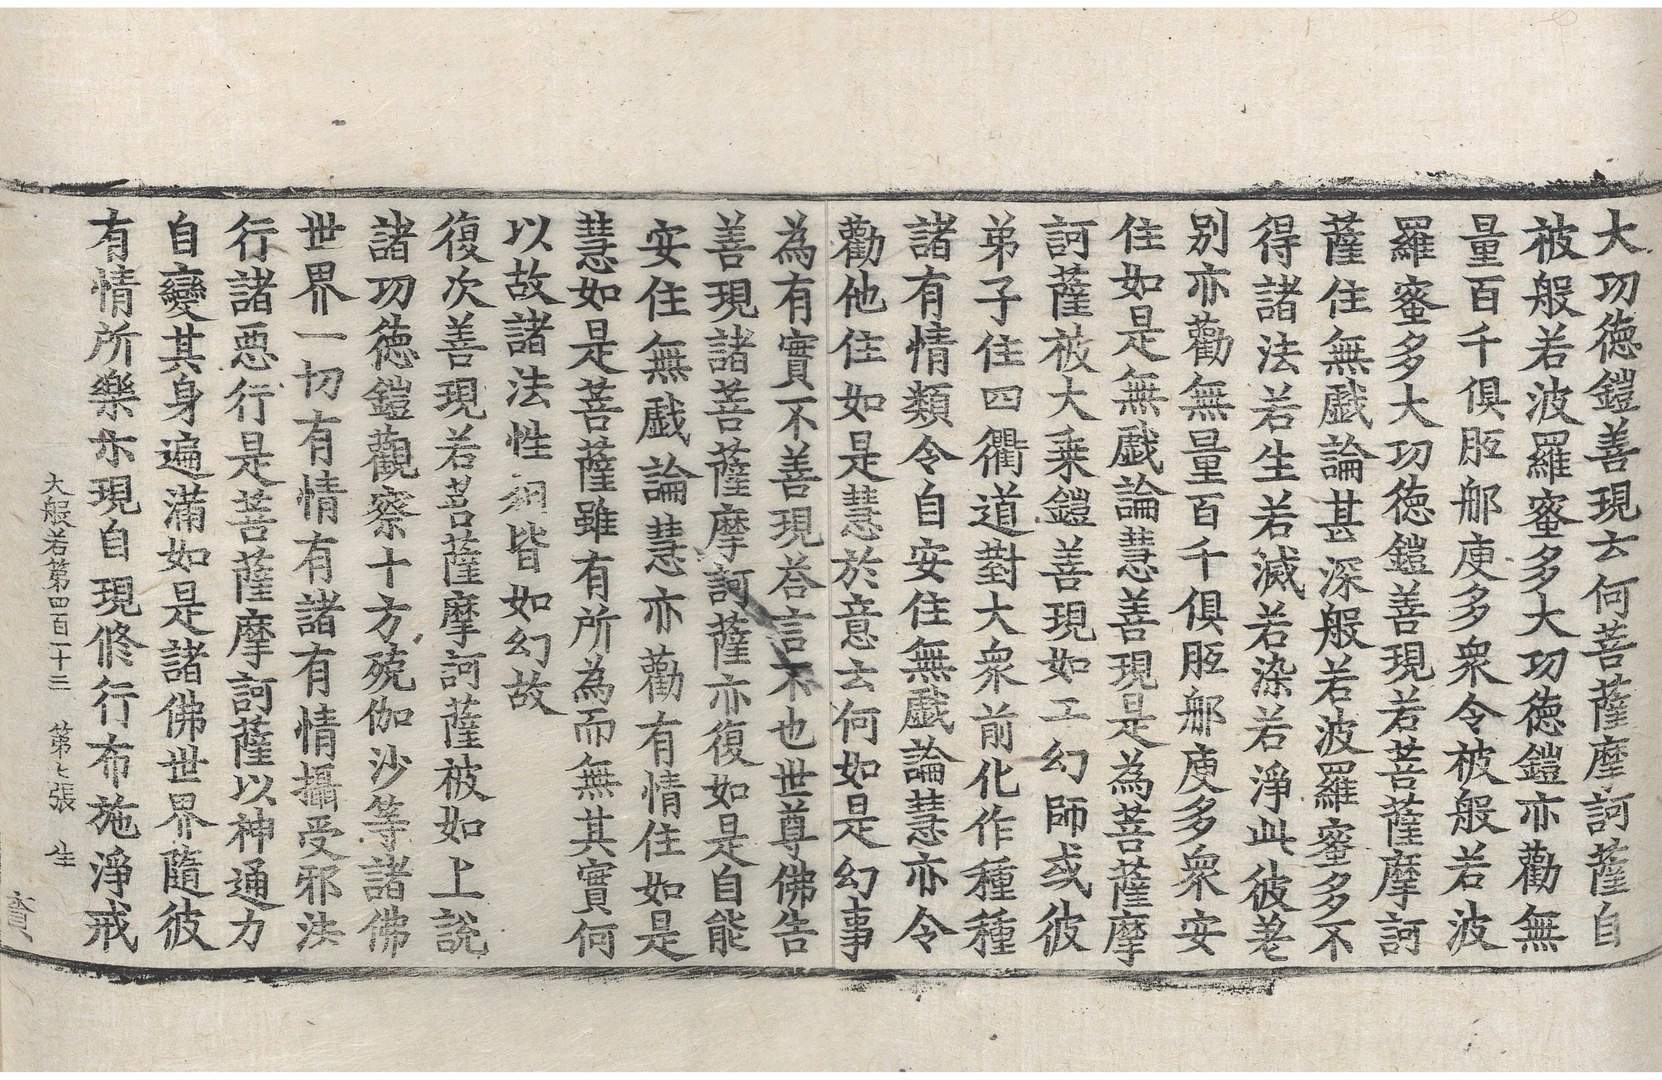 大功德鎧善現云何菩薩摩訶薩自
被般若波羅蜜多大功德鎧亦勸無
量百千俱胝那庾多衆令被般若波
羅蜜多大功德鎧善現若菩薩摩訶
薩住無戲論甚深般若波羅蜜多不
得諸法若生若滅若染若淨此彼差
別亦勸無量百千俱胝那庾多衆安
住如是無戲論慧善現是為菩薩摩
訶薩被大乘鎧善現如工幻師或彼
弟子住四衢道對大衆前化作種種
諸有情類令自安住無戲論慧亦令
勸他住如是慧於意云何如是幻事
為有實不善現荅言不也世尊佛告
善現諸菩薩摩訶薩亦復如是自能
安住無戲論慧亦勸有情住如是
慧如是菩薩雖有所為而無其實何
以故諸法性相皆如幻故
復次善現若菩薩摩訶薩被如上說
諸功德鎧觀察十方殑伽沙等諸佛
世界一切有情有諸有情攝受邪法
行諸惡行是菩薩摩訶薩以神通力
自變其身遍滿如是諸佛世界隨彼
有情所樂示現自現修行布施淨戒
大般若第四百一十三　第七張　生